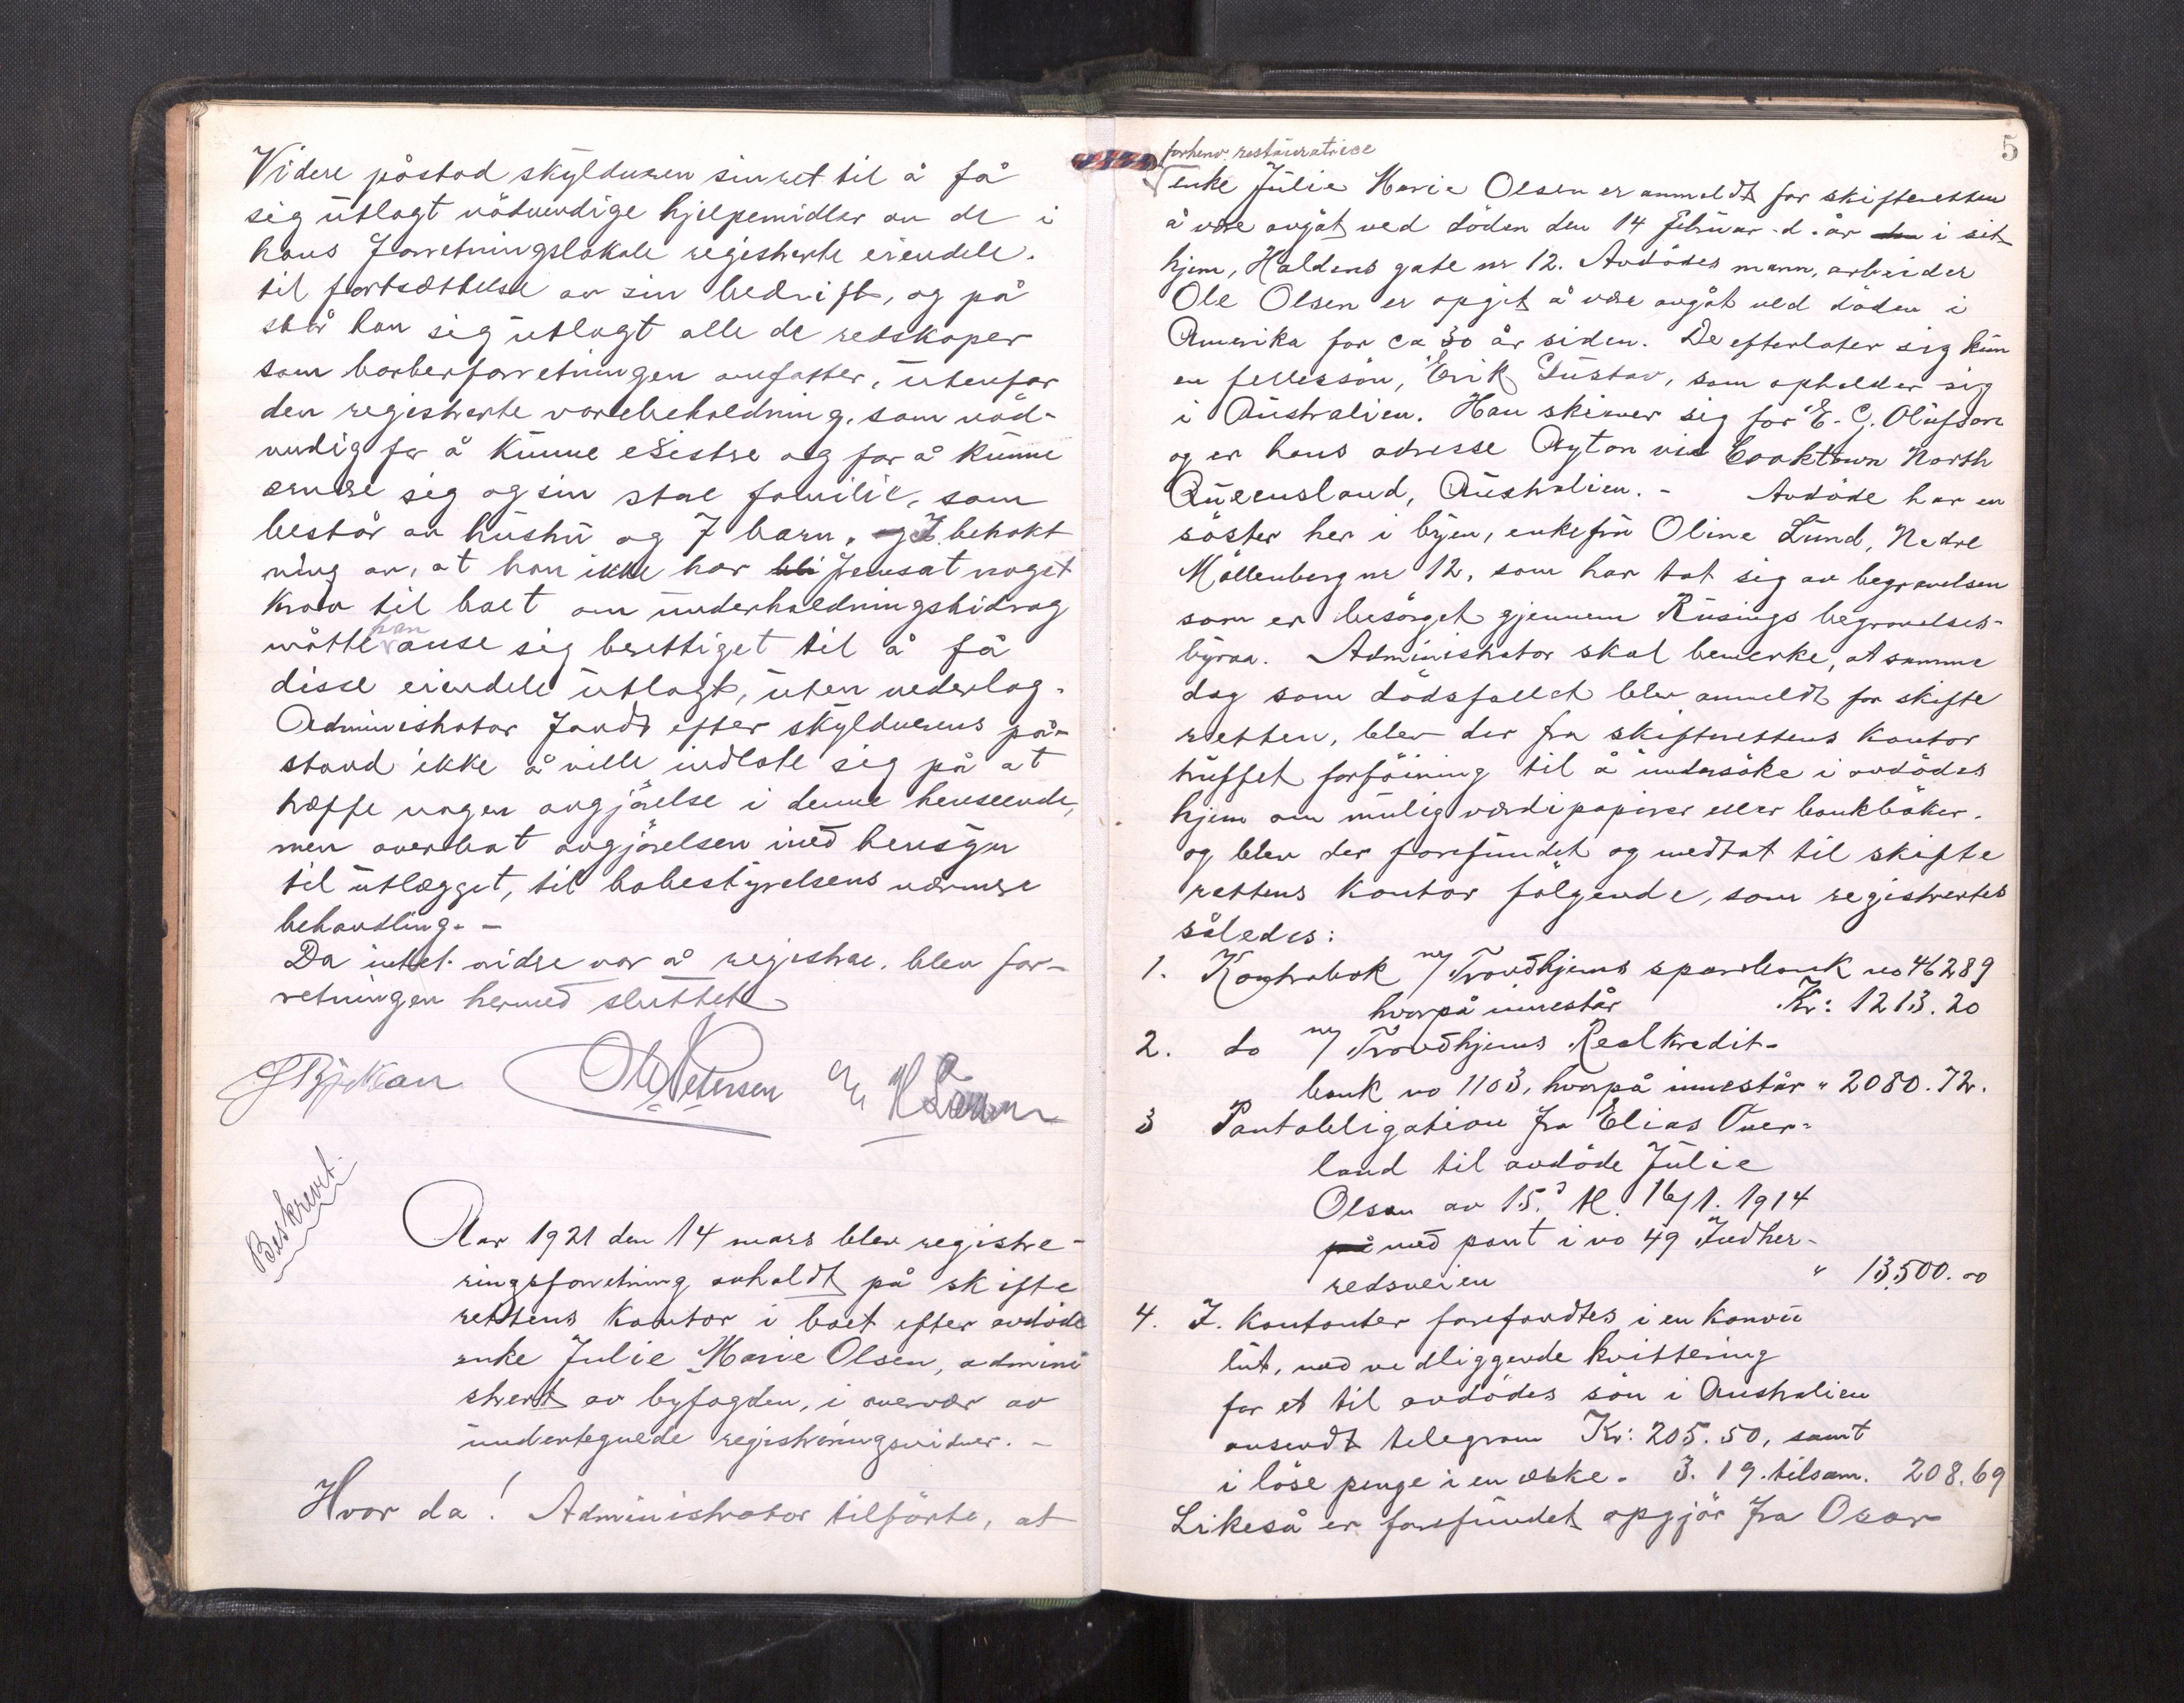 Videre påstod skyldneren sin ret til å få
sig utlagt nödvendige hjelpemidler av de i
hans forretningslokale registrerte eiendele.
til fortsættelse av sin bedrift, og på
står han sig utlagt alle de redskaper
som barberforretningen omfatter, utenfor
den registrerte varebeholdning, som nöd-
vendig for å kunne eksistere og for å kunne
ernære sig og sin store familie, som
består av hustru og 7 barn. I betrakt
ning av, at han ikke har fremsat noget
krav til boet om underholdningsbidrag
måtte han anse sig berettiget til å få
disse eiendele utlagt, uten vederlag.
Administrator fandt efter skyldnerens på-
stand ikke å ville indlate sig på at
træffe nogen avgjörelse i denne henseende,
men overlot avgjörelsen med hensyn
til utlægget, til bobestyrelsens nærmere
behandling. -
Da intet videre var å registrere, blev for-
retningen hermed sluttet
Ole Petersen
Beskrevet.
Aar 1921 den 14 mars blev registre-
ringsforretning avholdt på skifte
rettens kontor i boet efter avdöde
enke Julie Marie Olsen, admini
strert av byfogden, i overvær av
undertegnede registreringsvidner. -
Hvor da! Administrator tilförte, at
5
forhenv. restauratrice
enke Julie Marie Olsen er anmeldt for skifteretten
å være avgåt ved döden den 14 februar d. år i sit
hjem, Haldens gate nr 12. Avdödes mann, arbeider
Ole Olsen er opgit å være avgåt ved döden i
Amerika for ca 30 år siden. De efterlater sig kun
en fellessön, Erik Gustav, som opholder sig
i Australien. Han skriver sig for E. G. Olufsen
og er hans adresse Ayton via Cooktown North
Queensland, Australien. - Avdöde har en
söster her i byen, enkefru Oline Lund, Nedre
Möllenberg nr 12, som har tat sig av begravelsen
som er besörget gjennem Rusings begravelses-
byraa. Administrator skal bemerke, at samme
dag som dödsfallet blev anmeldt for skifte
retten, blev der fra skifterettens kontor
truffet forföining til å undersöke i avdödes
hjem om mulig værdipapirer eller bankböker.
og blev der forefundet og medtat til skifte
rettens kontor fölgende, som registrertes
således:
1. Kontrabok m/ Trondhjems sparebank no 46289
hvorpå innestår Kr: 1213.20
2. do m/ Trondhjems Realkredit-
bank no 1103, hvorpå innestår " 2080.72.
3 Pantobligation fra Elias Över-
land til avdöde Julie
Olsen av 15. tl. 16/1. 1914
på med pant i no 49 Indher-
redsveien " 13,500.00
4. I. Kontanter forefandtes i en konvu
lut, med vedliggende kvittering
for et til avdödes sön i Australien
avsendt telegram Kr: 205.50, samt
i löse penge i en æske. 3.19. tilsam. 208.69
Likeså er forefundet opgjör fra Oscar